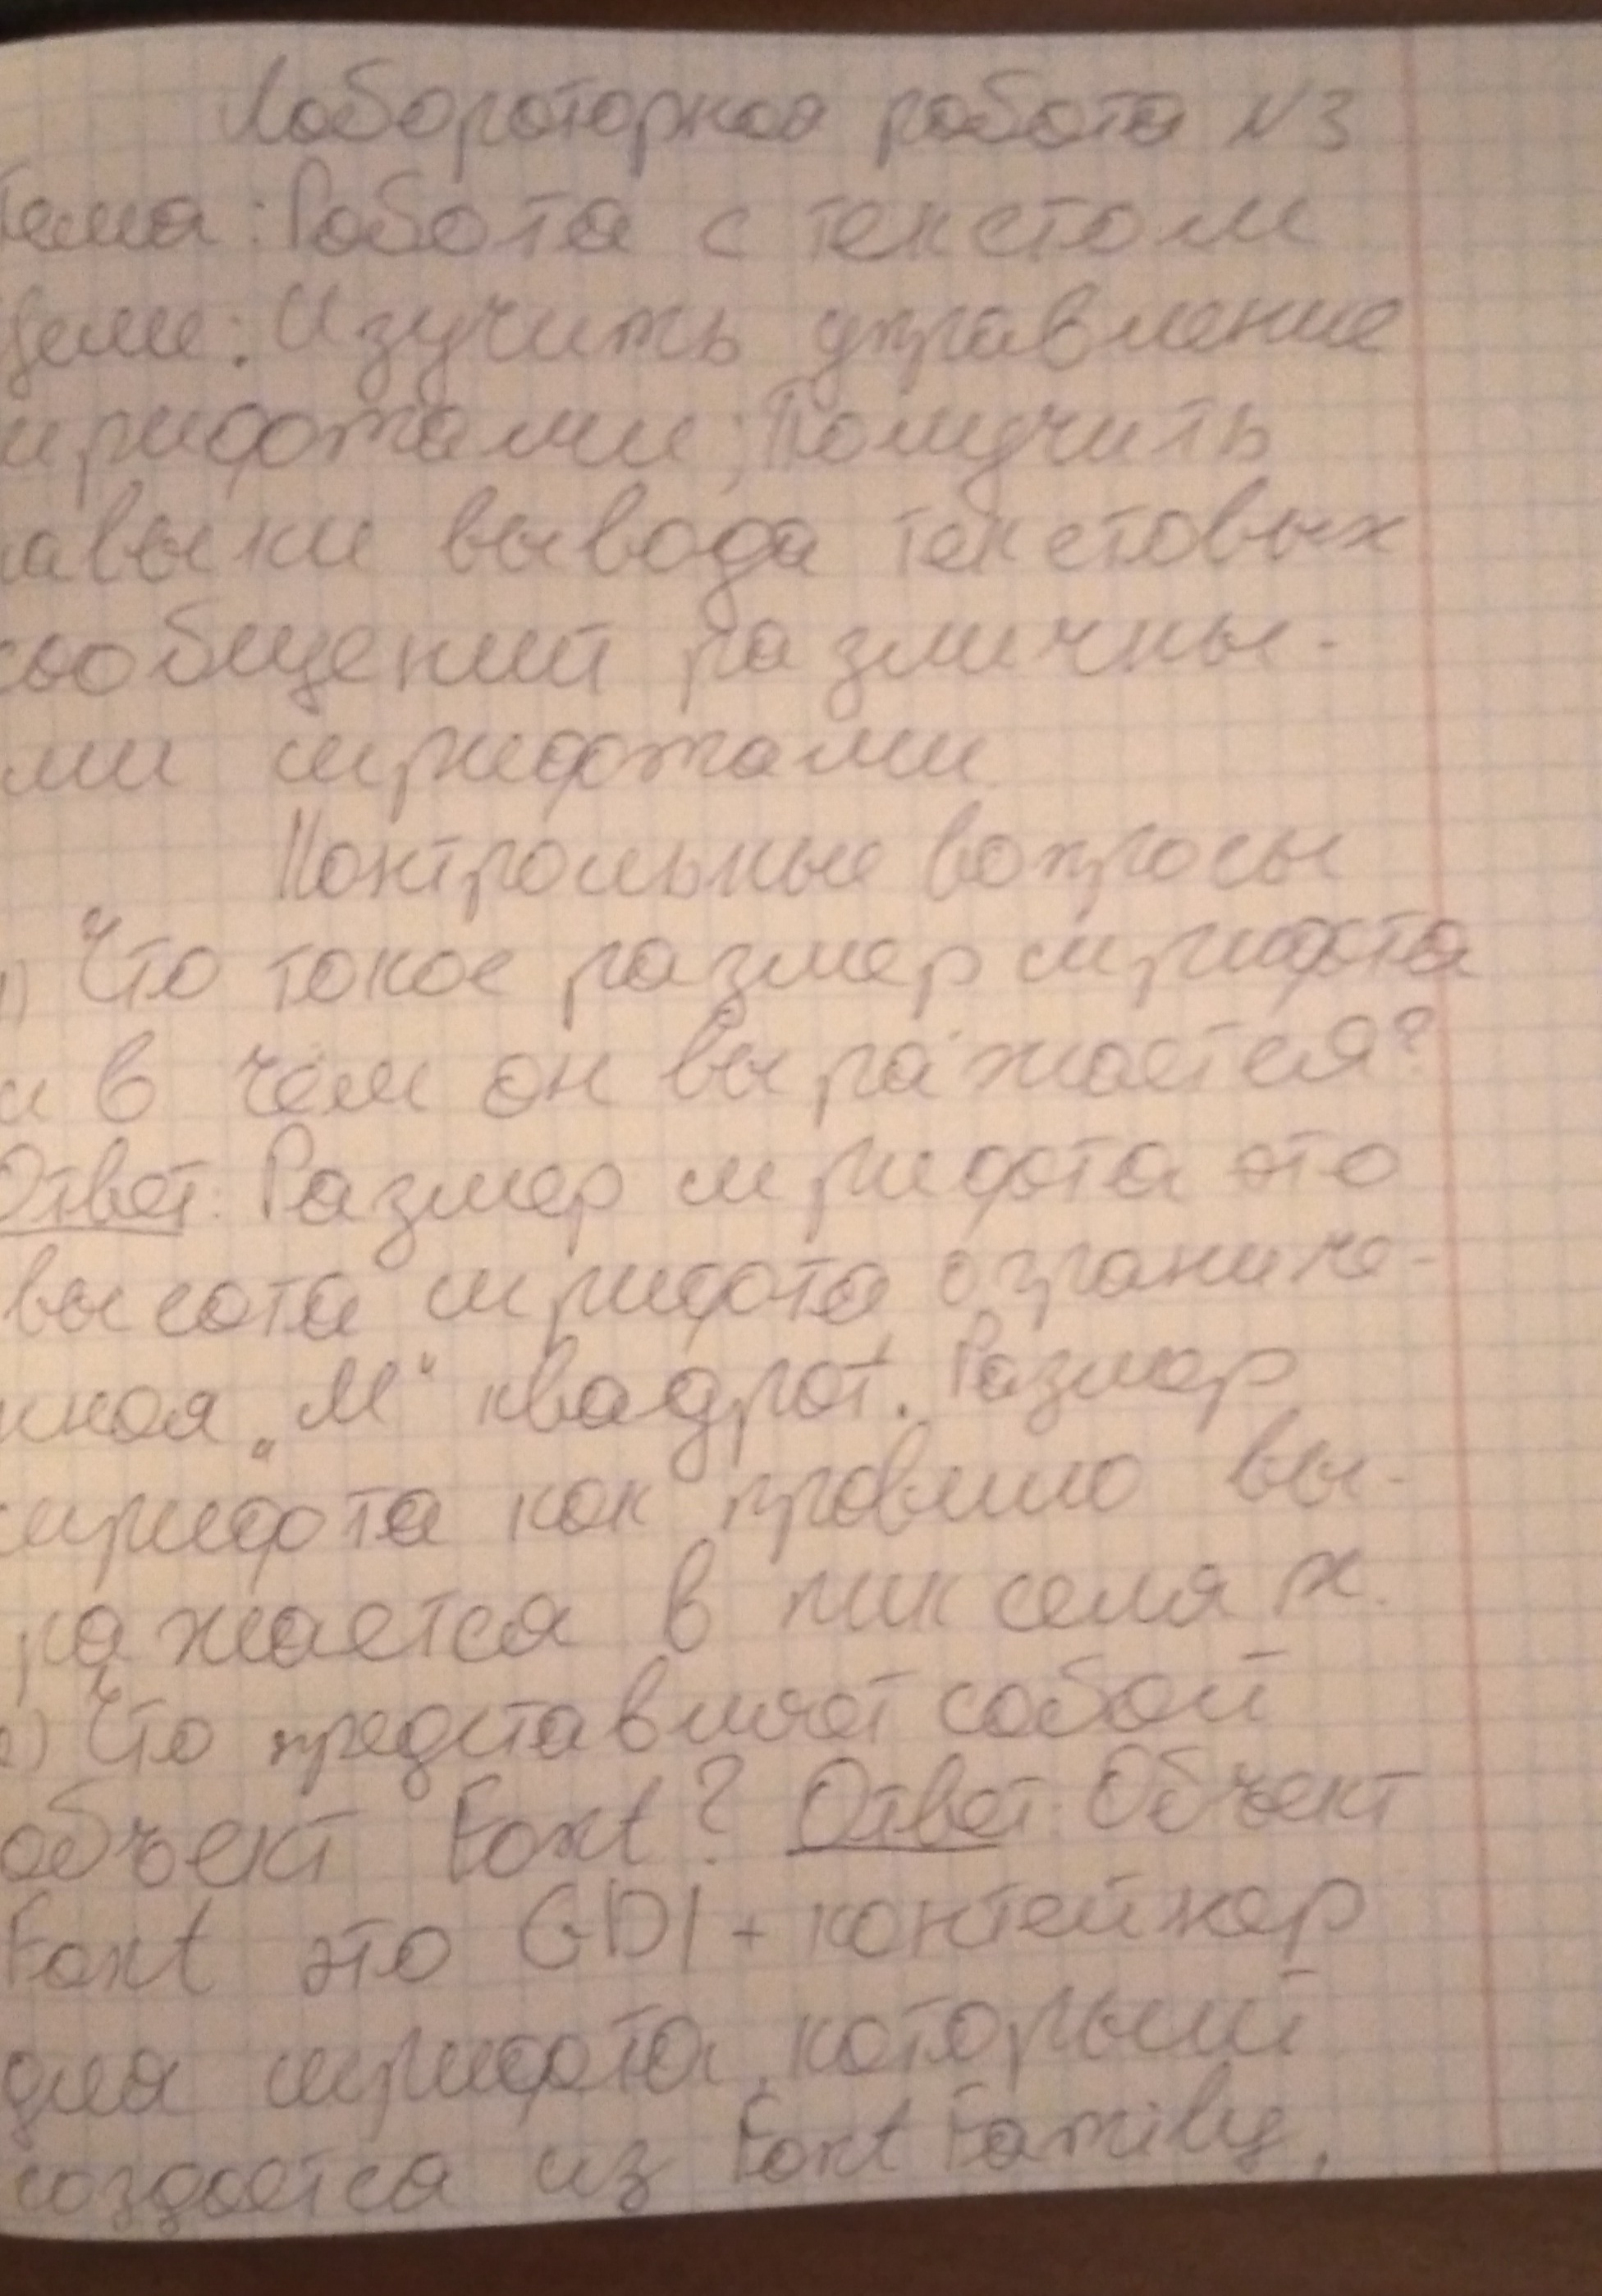 Лабораторная работа N3
Тема: Работа с текстом
Цели: Изучить управление
шрифтами; Получить
навыки вывода текстовых
сообщений различны-
ми шрифтами
Контрольные вопросы
1) Что такое размер шрифта
и в чем он выражается?
Ответ: Размер шрифта это
высота шрифта ограниче-
нная "М" квадрат. Размер
шрифта как правило вы-
ражается в пикселях.
2) Что представляет собой
объект Font? Ответ: Объект
Font это GDI+ контейнер
для шрифта, который
создается из Font Family,